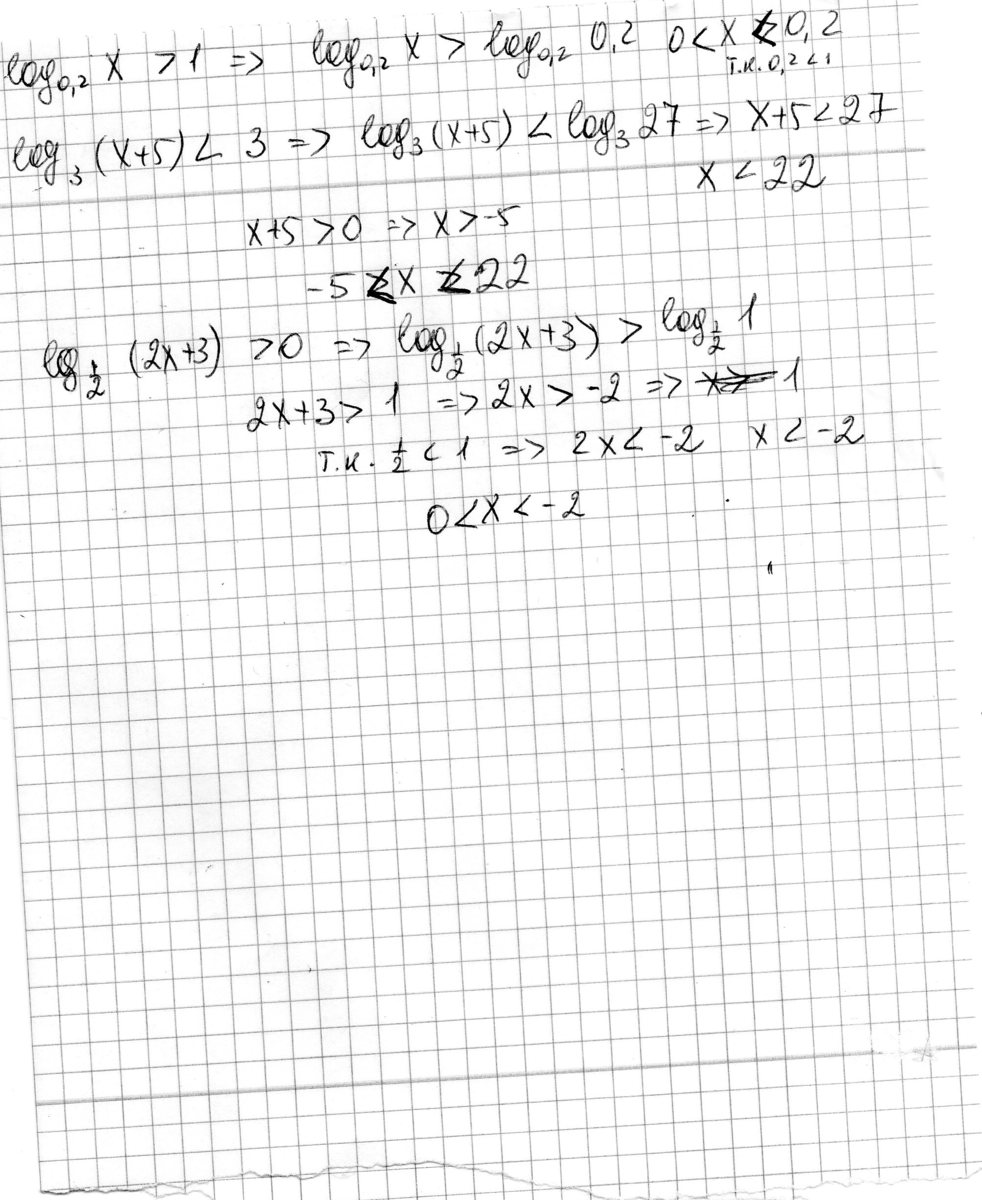 log₀,₂ x > 1 => log₀,₂ x > log₀,₂ 0,2 0 < x < 0,2
т.к. 0,2 < 1
log₃ (x+5) < 3 => log₃ (x+5) < log₃ 27 => x+5 < 27
x < 22
x+5 > 0 => x > -5
-5 < x < 22
log_½ (2x+3) > 0 => log_½ (2x+3) > log_½ 1
2x+3 > 1 => 2x > -2 => 1
т.к. ½ < 1 => 2x < -2 x < -2
0 < x < -2